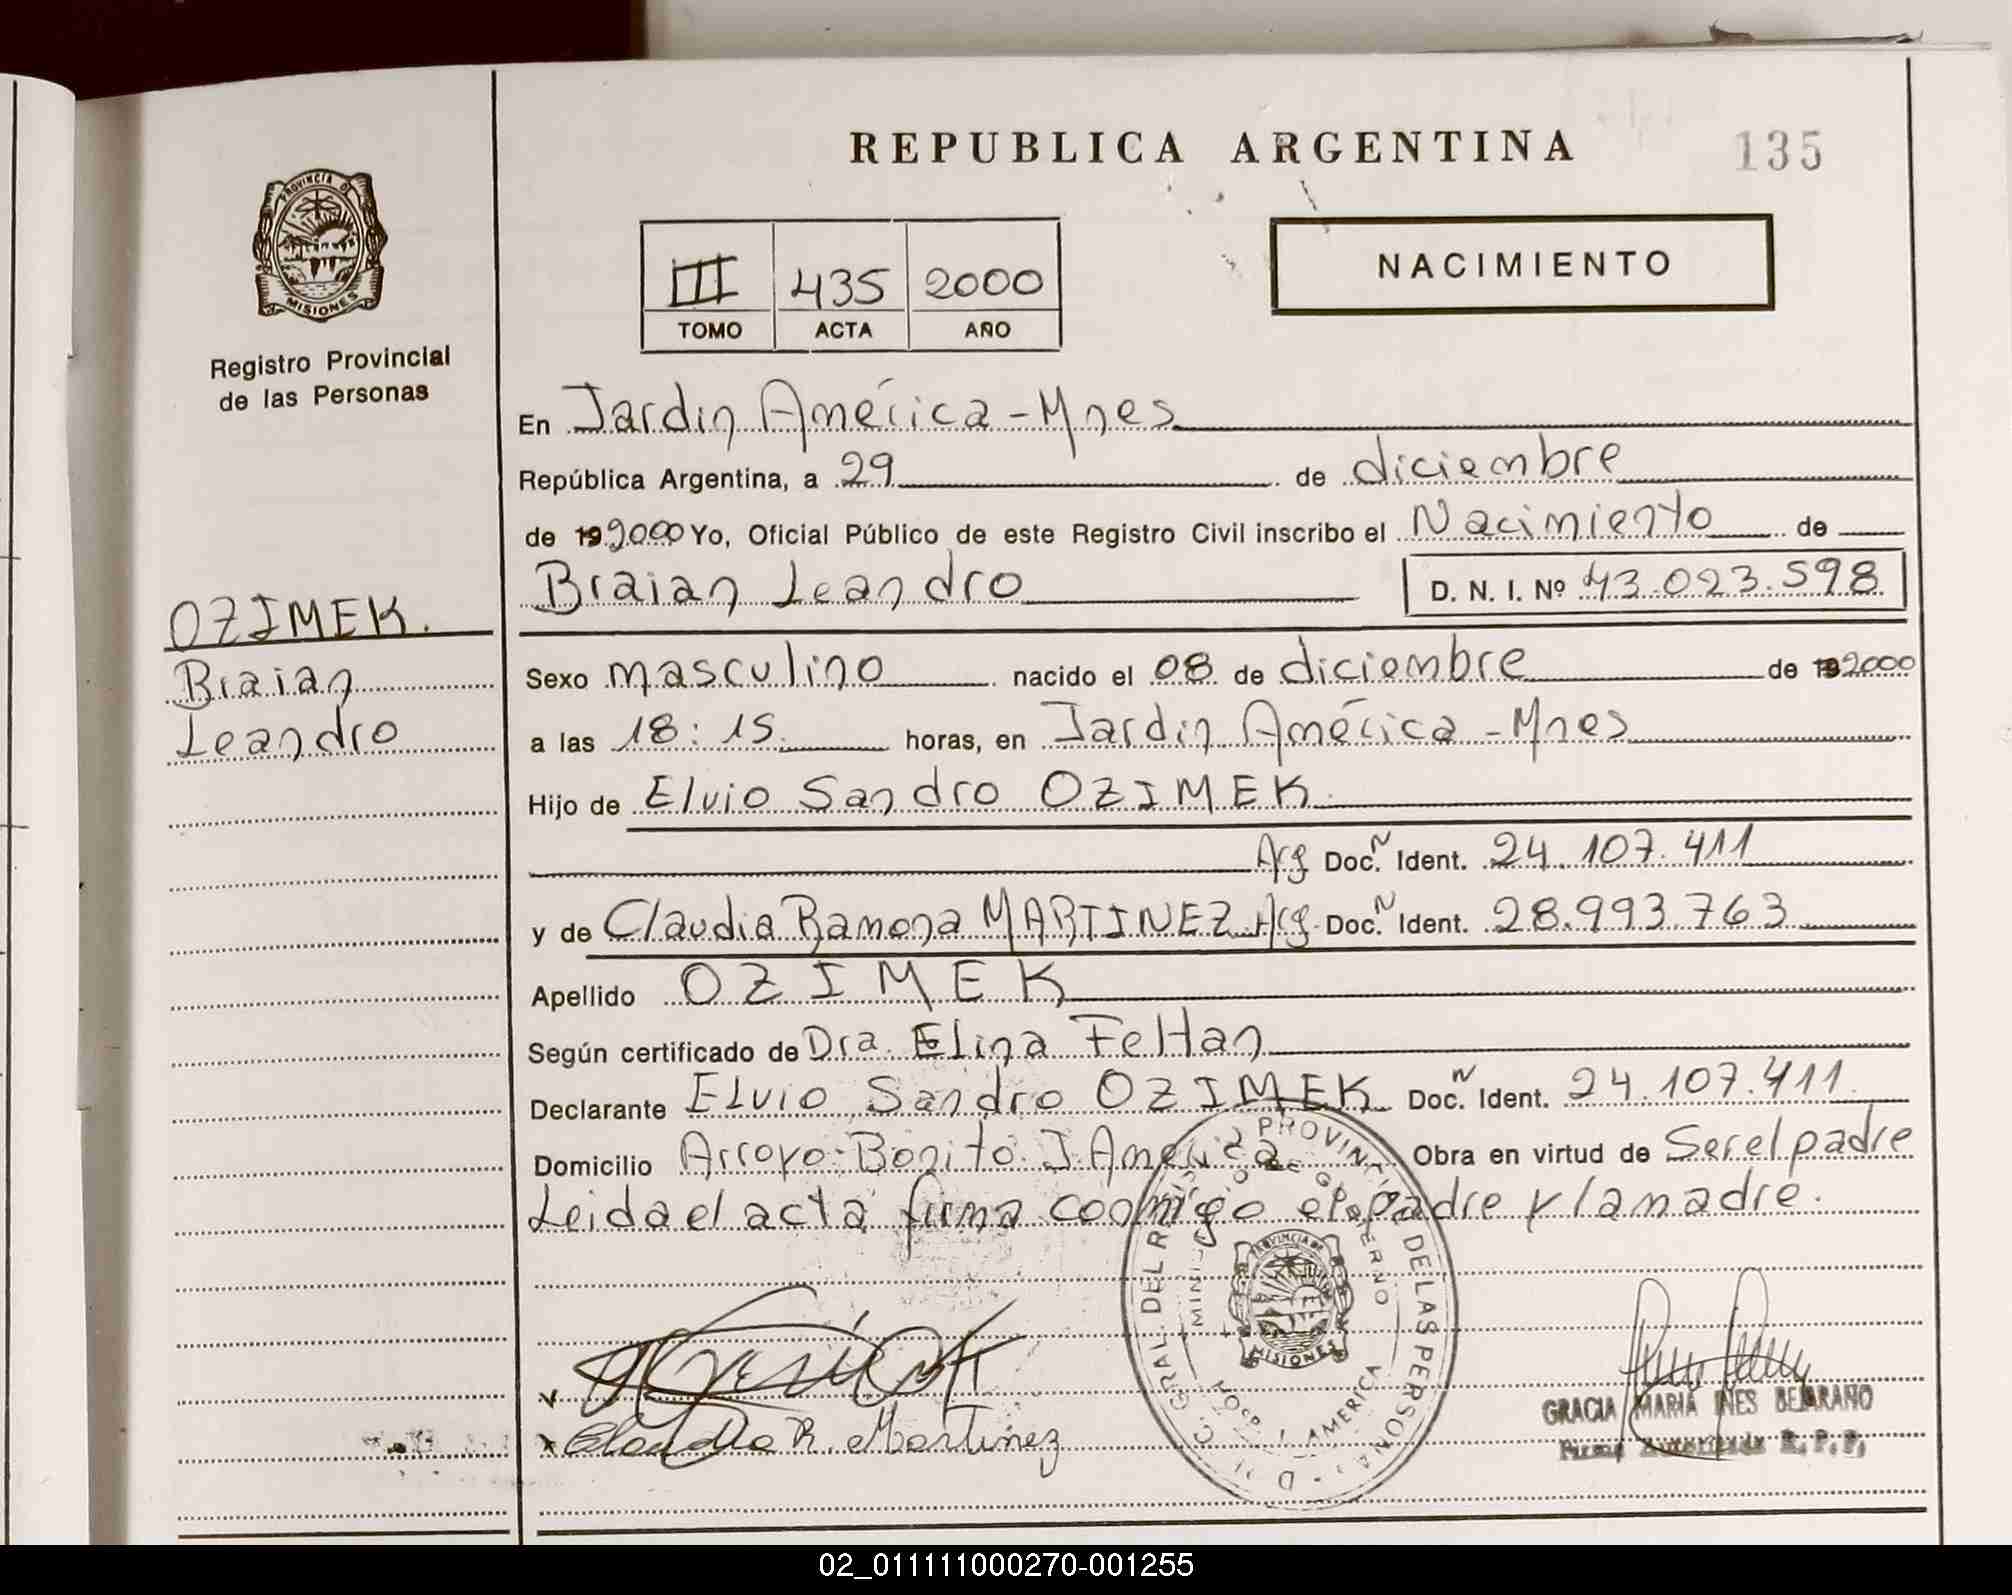 REPUBLICA ARGENTINA
135
PROVINCIA DE
MISIONES
Registro Provincial
de las Personas
III 435 2000
TOMO ACTA AÑO
NACIMIENTO
En Jardin América - Mnes
República Argentina, a 29 de diciembre
de 19 2000 Yo, Oficial Público de este Registro Civil inscribo el Nacimiento de
Braian Leandro D. N. I. Nº 43.023.598
OZIMEK.
Braian
Leandro
Sexo masculino nacido el 08 de diciembre de 19 2000
a las 18:15 horas, en Jardin América - Mnes
Hijo de Elvio Sandro OZIMEK
Arg Doc. N Ident. 24.107.411
y de Claudia Ramona MARTINEZ Arg. Doc. N Ident. 28.993.763
Apellido OZIMEK
Según certificado de Dra. Elina Feltan
Declarante Elvio Sandro OZIMEK Doc. N Ident. 24.107.411
Domicilio Arroyo Bonito J. América Obra en virtud de Ser el padre
Leida el acta firma conmigo el padre y la madre.
GRAL. DEL PROVINCIAL DE LAS PERSONAS
GOBIERNO
AMERICA
PROVINCIA DE
MISIONES
Claudia R. Martinez
GRACIA MARIA INES BEJARANO
Firma Autorizada R. P. P.
02_011111000270-001255